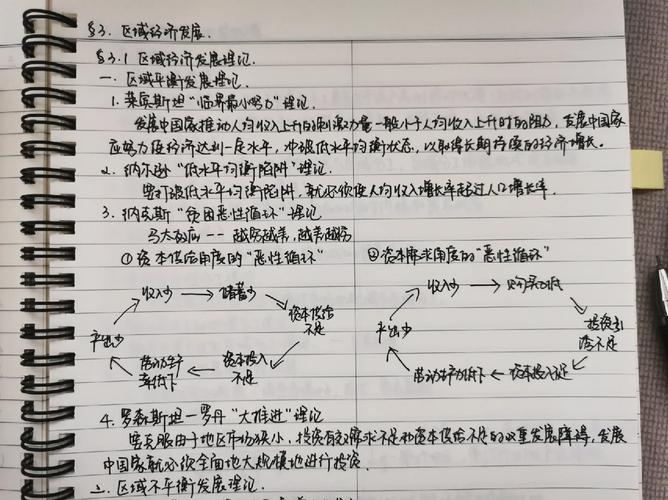 §3. 区域经济发展.
§3.1 区域经济发展理论.
一. 区域平衡发展理论.
1. 莱宾斯坦“临界最小努力”理论.
发展中国家推动人均收入上升的刺激力量一般小于人均收入上升时的阻力，发展中国家
应努力使经济达到一定水平，冲破低水平均衡状态，以取得长期持续的经济增长。
2. 纳尔逊“低水平均衡陷阱”理论.
要打破低水平均衡陷阱，就必须使人均收入增长率超过人口增长率.
3. 纳克斯“贫困恶性循环”理论
马太效应 —— 越穷越弱，越弱越穷
①资本供给角度的“恶性循环”
收入少 → 储蓄少
资本供给
不足
资本投入
不足
劳动生产
率低下
产出少
②资本需求角度的“恶性循环”
收入少 → 购买力低
投资引
诱不足
劳动生产力低下 ← 资本投入不足
产出少
4. 罗森斯坦—罗丹“大推进”理论
要克服由于地区市场狭小，投资有效需求不足和资本供给不足的双重发展障碍，发展
中国家就必须全面地大规模地进行投资.
二. 区域不平衡发展理论.